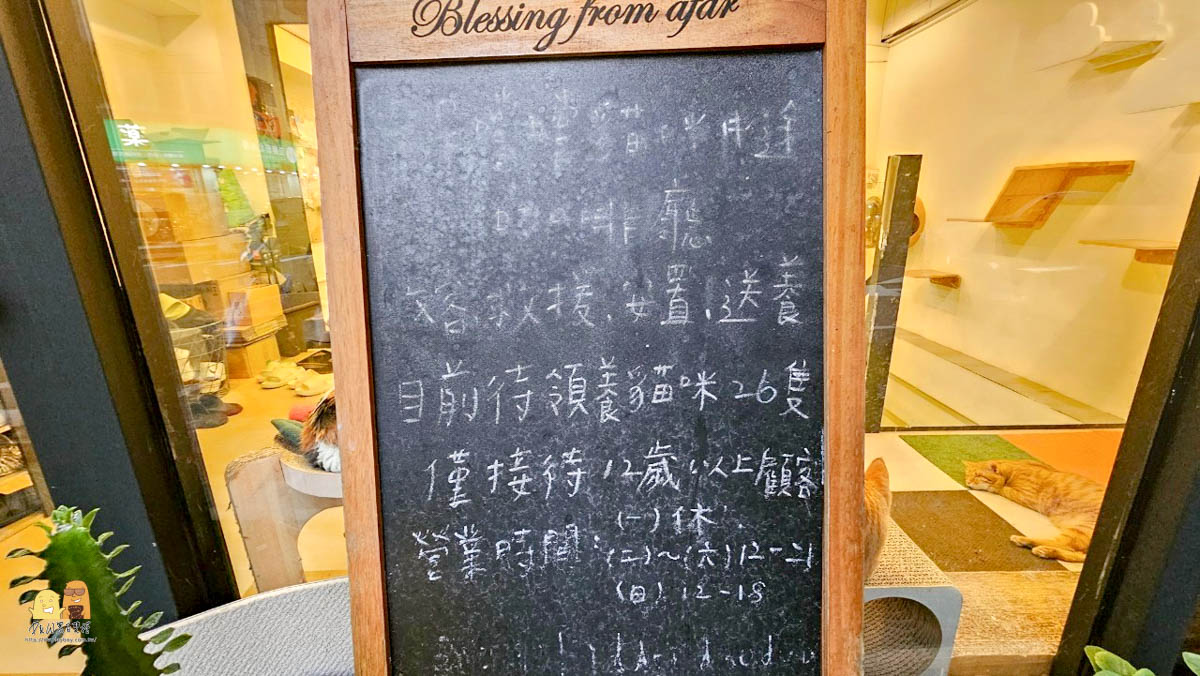 Blessing from afar
貓咪中途
咖啡廳
救援、安置、送養
目前待領養貓咪26隻
僅接待12歲以上顧客
(一)休
營業時間：(二)~(六)12-21
(日)12-18
藥